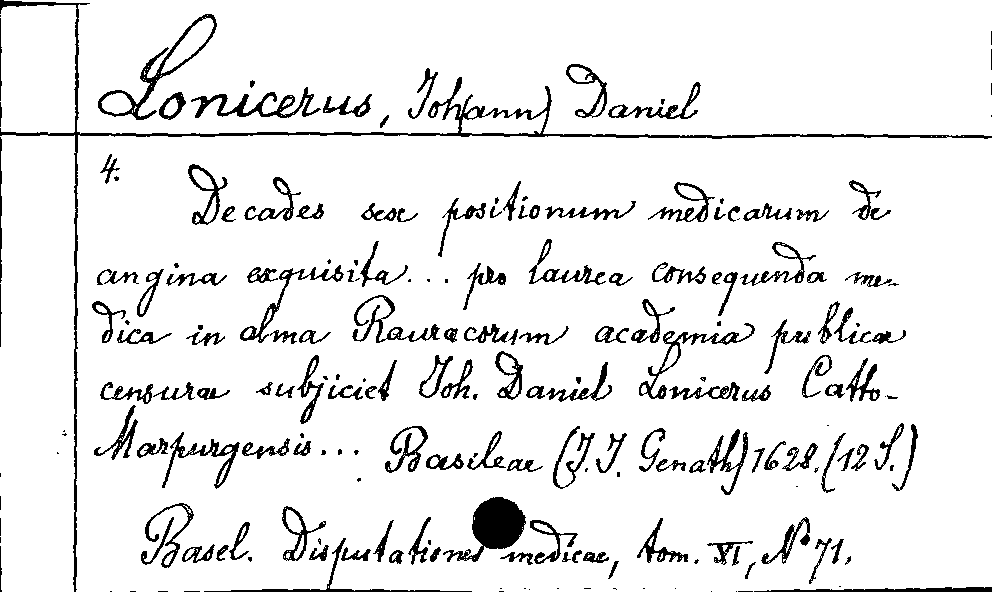 Lonicerus, Joh(ann) Daniel
4.
Decades sex positionum medicarum de
angina exquisita... pro laurea consequenda me-
dica in alma Rauracorum academia publicae
censurae subjiciet Joh. Daniel Lonicerus Catto-
Marpurgensis... Basileae (J. J. Genath) 1628. (12 S.)
Basel. Disputationes medicae, tom. XI, N° 71.